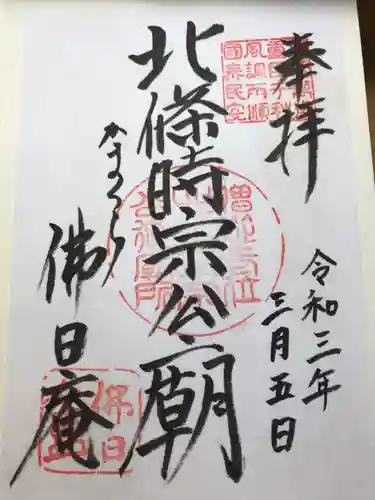 奉拝
令和三年
三月五日
北條時宗公廟
かまくら
佛日庵
佛日